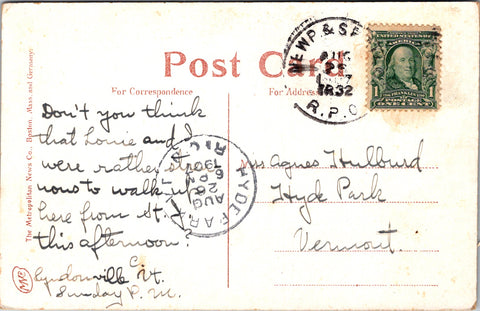 Post Card
For Correspondence
For Address Only
The Metropolitan News Co., Boston, Mass. and Germany.
NEWP & SP
AUG
25
TR32
R.P.O
UNITED STATES OF AMERICA
1 1
FRANKLIN
POSTAGE
ONE CENT
HYDE PARK
AUG
26
6 PM
Don't you think
that Louie and I
were rather strenuous
to walk up
here from St. J.
this afternoon?
Lyndonville Vt.
Sunday P.M.
Agnes Hulburd
Hyde Park
Vermont.